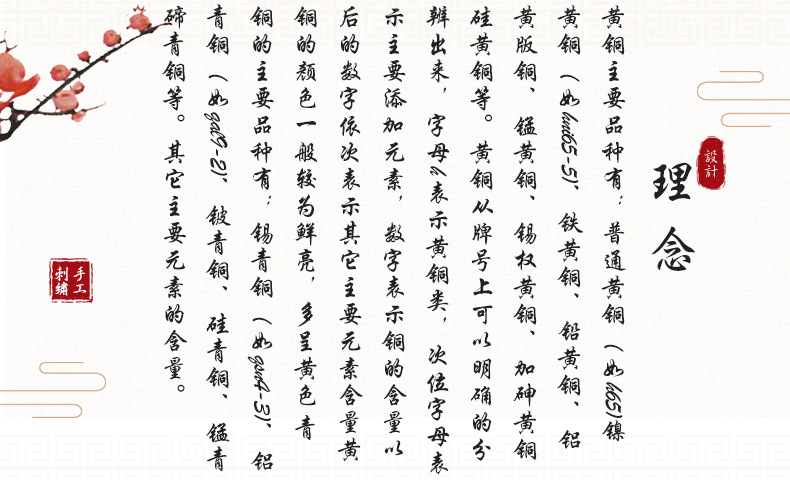 設計
理念
黄铜主要品种有；普通黄铜（如h65)镍
黄铜（如hni65-5)、铁黄铜、铅黄铜、铝
黄版铜、锰黄铜、锡权黄铜、加砷黄铜
硅黄铜等。黄铜从牌号上可以明确的分
辨出来，字母«表示黄铜类，次位字母表
示主要添加元素，数字表示铜的含量以
后的数字依次表示其它主要元素含量黄
铜的颜色一般较为鲜亮，多呈黄色青
铜的主要品种有；锡青铜（如qsn4-3)、铝
青铜（如qal9-2)、铍青铜、硅青铜、锰青
碲青铜等。其它主要元素的含量。
手工
刺繡